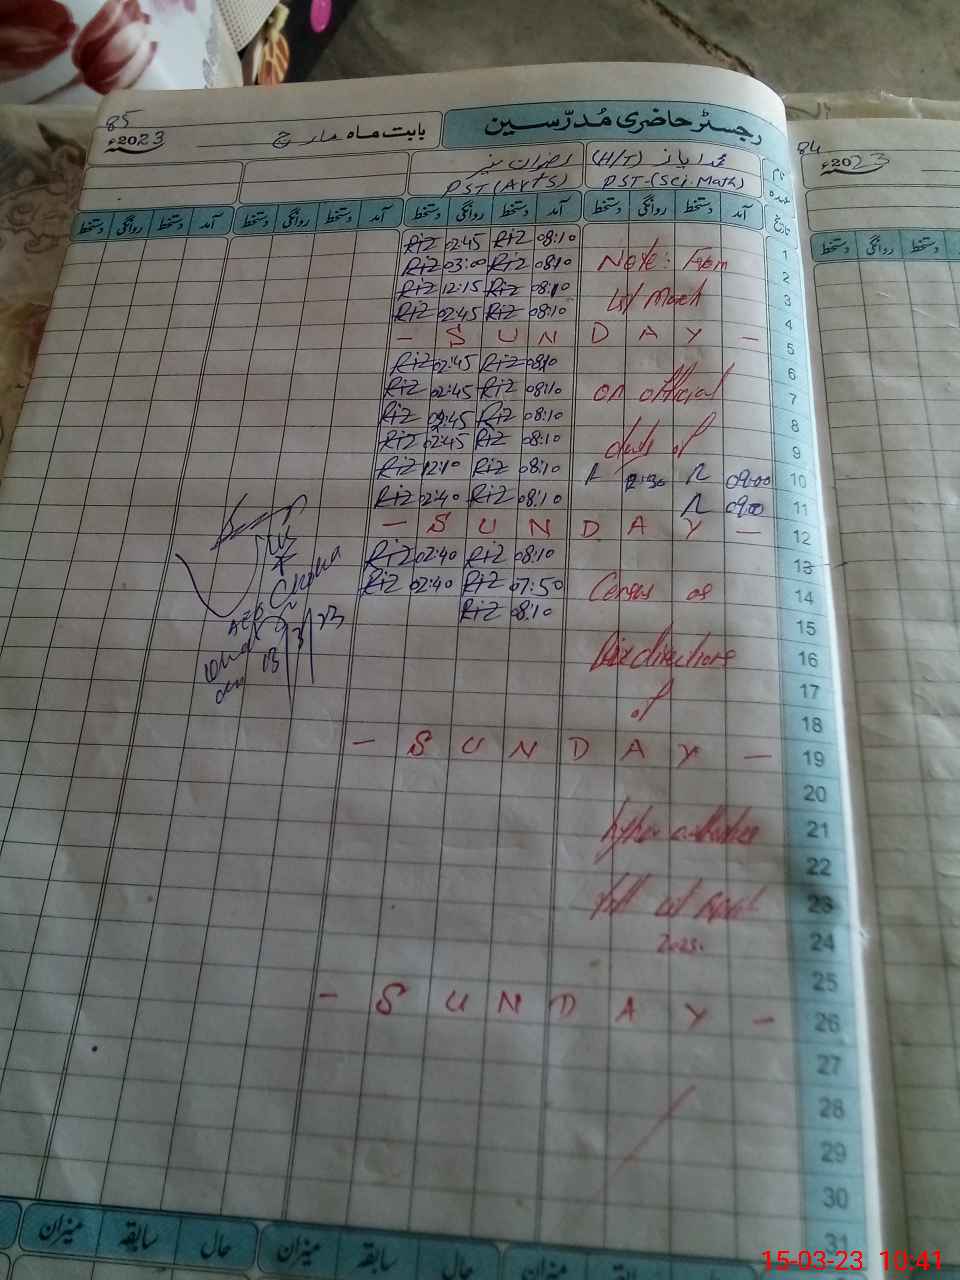 85
رجسٹر حاضری مُدرّسین
بابت ماہ مارچ
2023ء
(H/T)
PST-(Sci.Math)
PST (Arts)
نام
عہدہ
تاریخ
آمد دستخط روانگی دستخط آمد دستخط روانگی دستخط آمد دستخط روانگی دستخط آمد دستخط روانگی دستخط
1 08:10 Riz 02:45 Riz
2 Note: From 08:10 Riz 03:00 Riz
3 1st March 08:10 Riz 12:15 Riz
4 08:10 Riz 02:45 Riz
5 - S U N D A Y -
6 08:10 Riz 02:45 Riz
7 on official 08:10 Riz 02:45 Riz
8 08:10 Riz 02:45 Riz
9 of 08:10 Riz 02:45 Riz
10 09:00 08:10 Riz 12:10 Riz
11 09:00 08:10 Riz 02:40 Riz
12 - S U N D A Y -
13 08:10 Riz 02:40 Riz
14 Census as 07:50 Riz 02:40 Riz
15 08:10 Riz
16 directions
17 of
18
19 - S U N D A Y -
20
21 higher authorities
22
23
24
25
26 - S U N D A Y -
27
28
29
30
31
AEO
13/3/23
حال سابقہ میزان حال سابقہ میزان
84
2023ء
روانگی دستخط
15-03-23 10:41